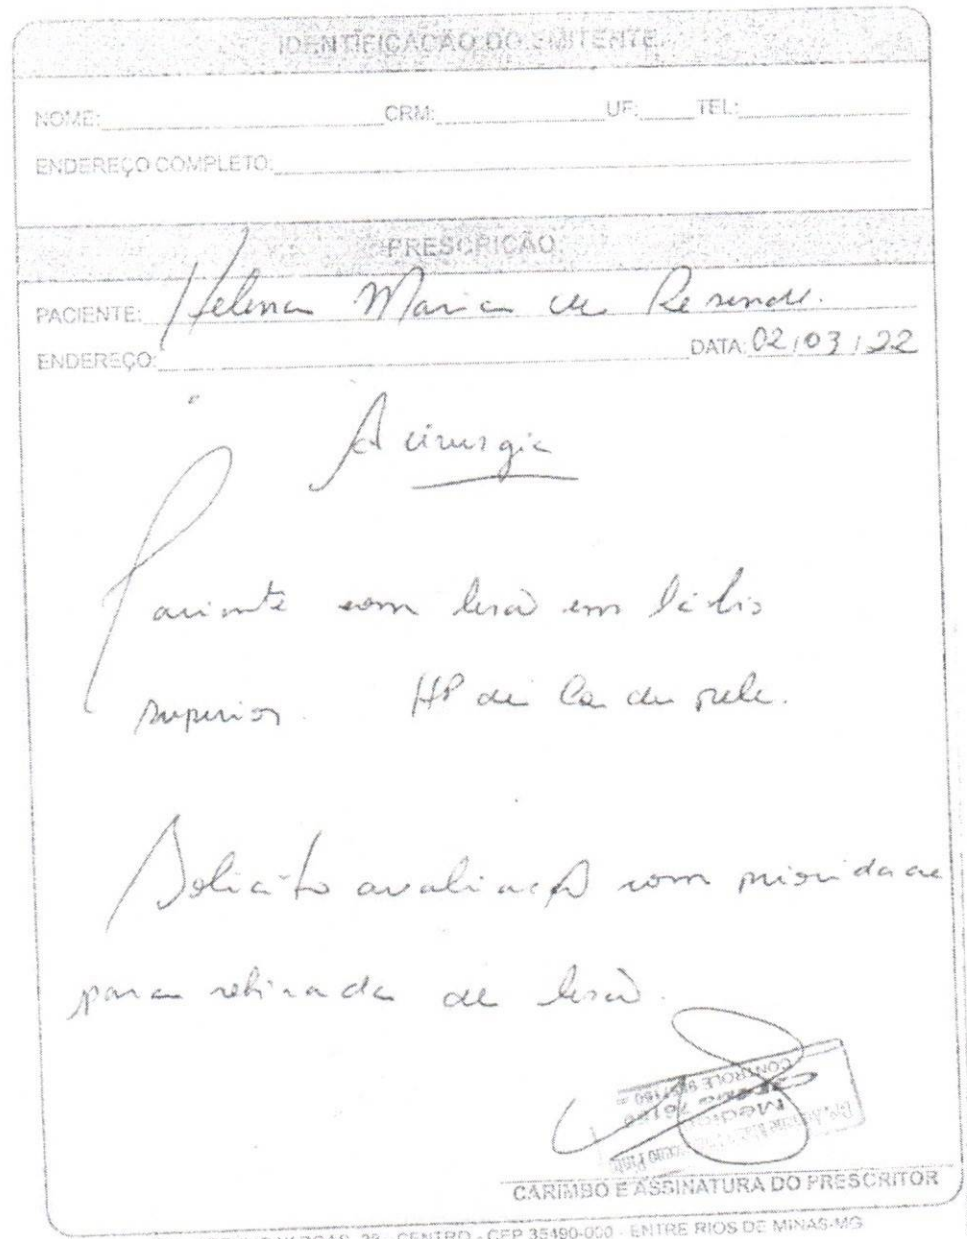 IDENTIFICAÇÃO DO EMITENTE
NOME: CRM: UF: TEL:
ENDEREÇO COMPLETO:
PRESCRIÇÃO
PACIENTE: Helena Maria de Resende.
ENDEREÇO: DATA: 02/03/22
À cirurgia
Paciente com lesão em lábio
superior. HP de Ca de pele.
Solicito avaliação com prioridade
para retirada de lesão.
CONTROLE
CARIMBO E ASSINATURA DO PRESCRITOR
CENTRO - CEP 35490-000 - ENTRE RIOS DE MINAS-MG